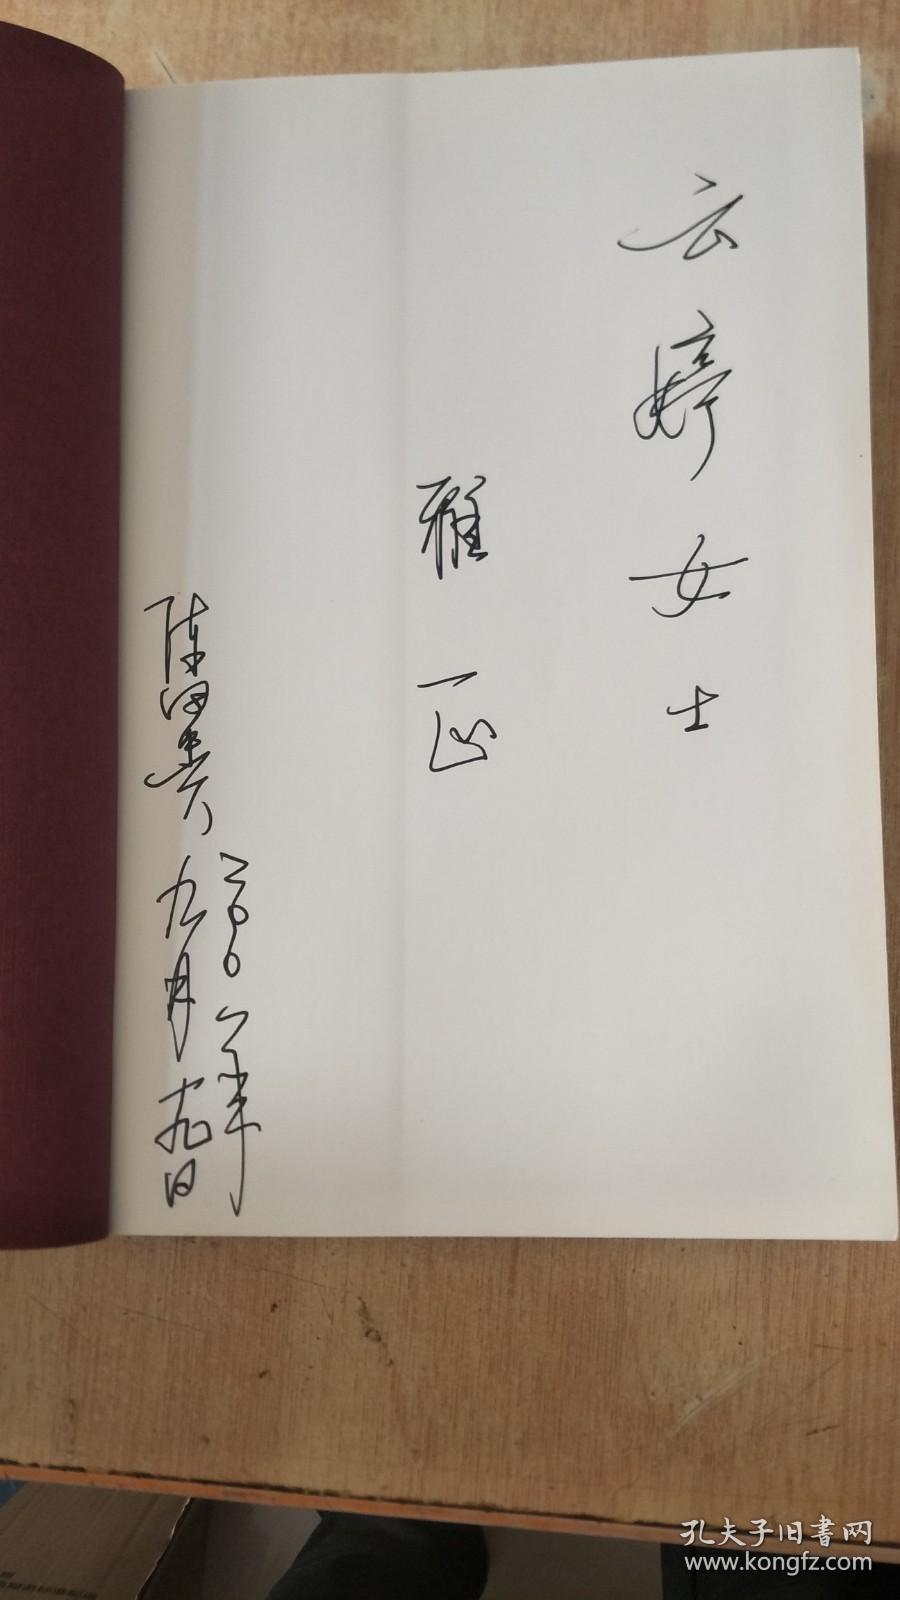 云婷女士
雅正
陈田贵
二〇〇八年
九月十九日
孔夫子旧书网
www.kongfz.com